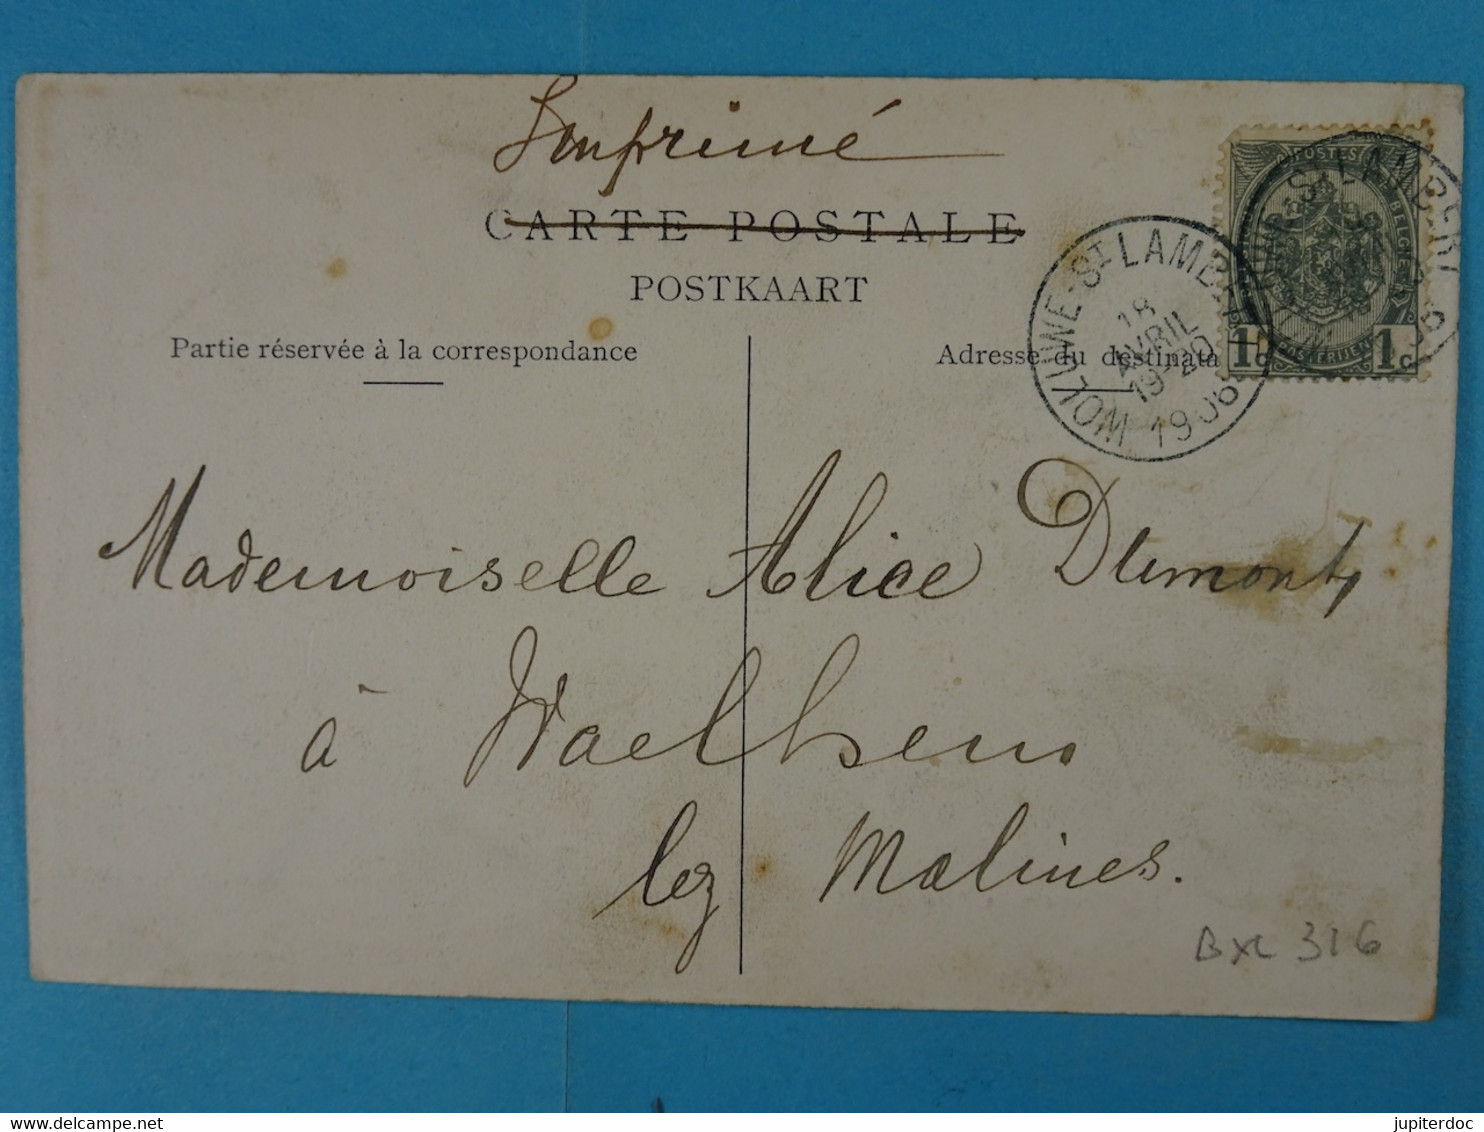 Imprimé
CARTE POSTALE
POSTKAART
Partie réservée à la correspondance
Adresse du destinata
WOLUWE-ST LAMBERT
18
AVRIL
19-20
1906
POSTES
BELGIEN
1c 1c
Mademoiselle Alice Dumont,
à Waelhem
lez Malines.
BXL 316
delcampe.net
jupiterdoc